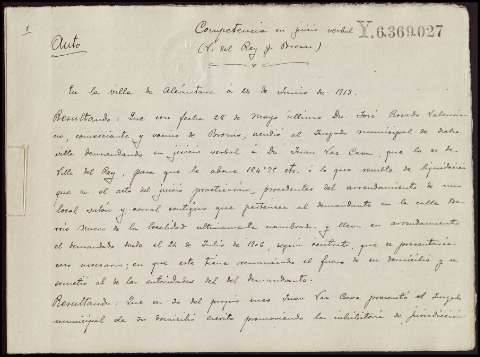 1
Auto
Competencia en juicio verbal
Y.6.369.027
(V. del Rey y Brozas)
En la villa de Alcántara á 24 de Junio de 1913.
Resultando: Que con fecha 28 de Mayo último Dn. José Rosado
, comerciante y vecino de Brozas, acudió al Juzgado municipal de dicha
villa demandando en juicio verbal á Dn. Juan Vas Cava, que lo es de
Villa del Rey, para que le abone 184'75 pts. ó lo que resulte de liquidación
que en el acto del juicio practicarán, procedentes del arrendamiento de un
local salón y corral contiguo que pertenece al demandante en la calle
Nuevo de la localidad ultimamente nombrada y lleva en arrendamiento
el demandado desde el 24 de Julio de 1906, según contrato que se presentaría
caso necesario; en que este tiene renunciado el fuero de su domicilio y se
sometió al de las autoridades del del demandante.
Resultando: Que en de del propio mes Juan Vas Cava presentó al Juzgado
municipal de su domicilio escrito promoviendo la inhibitoria de jurisdicción